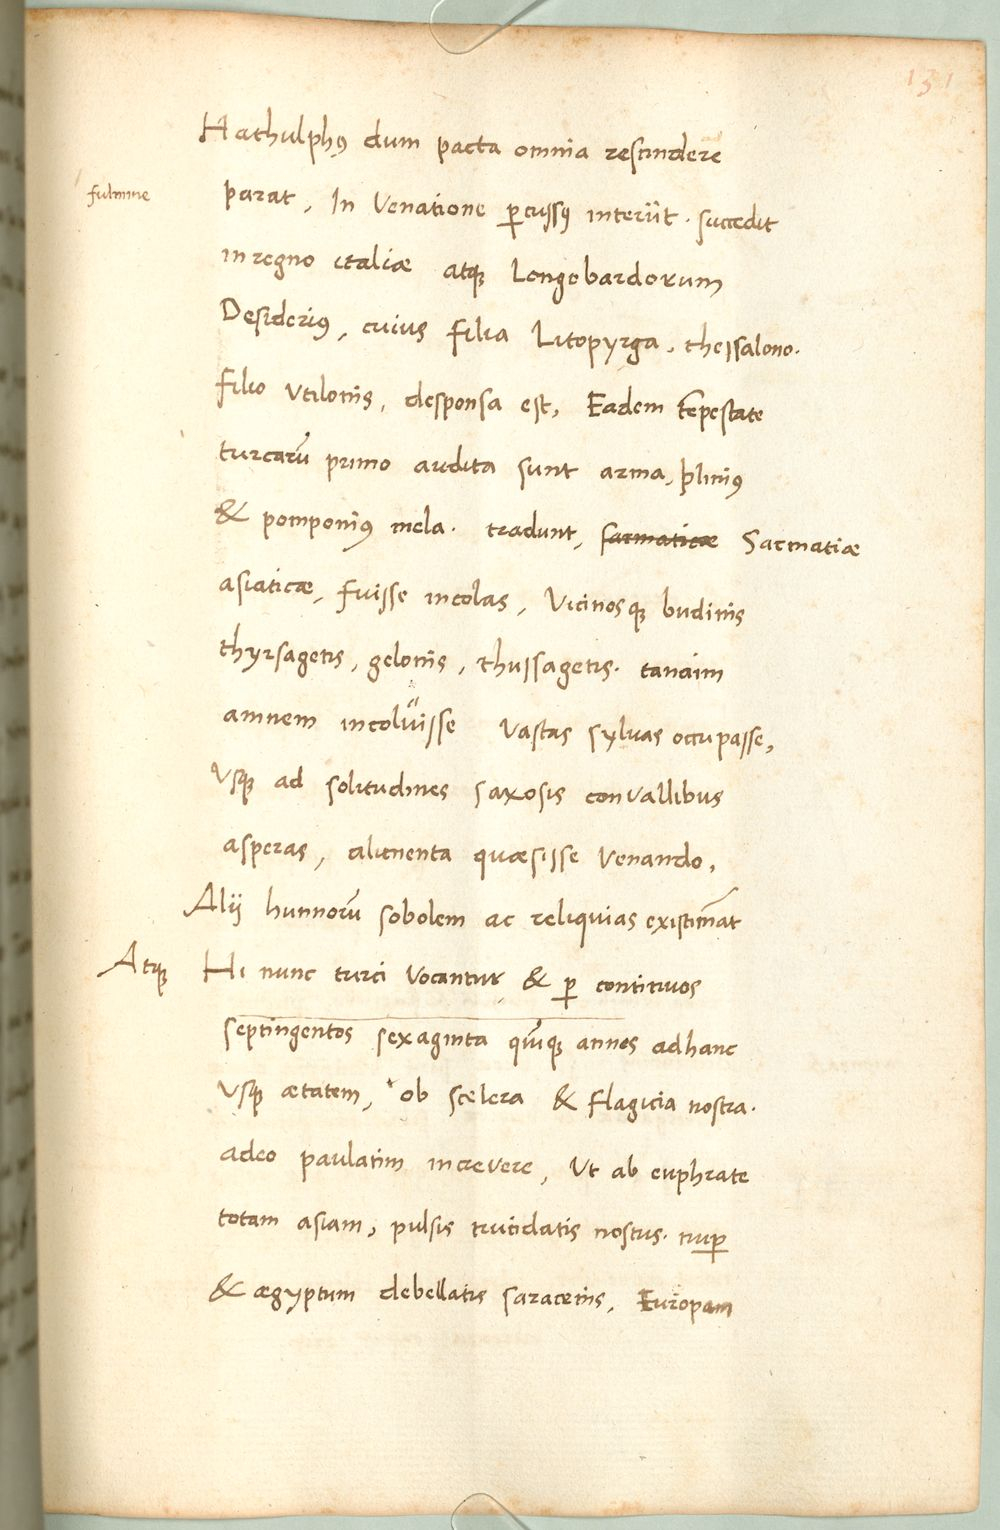 131
Hathulphꝰ dum pacta omnia rescindere
fulmine
parat, In Venatione ꝑcussꝰ interiit. succedit
in regno italiæ atqꝫ Longobardorum
Desideriꝰ, cuius filia Litopyrga, thessalono.
filio Vtilonis, desponsa est, Eadem tẽpestate
turcarũ primo audita sunt arma, pliniꝰ
& pomponiꝰ mela. tradunt, sarmaticæ Sarmatiæ
asiaticæ, fuisse incolas, Vicinosqꝫ budinis
thyrsagetis, gelonis, thussagetis. tanaim
amnem incoluisse Vastas sylvas occupasse,
Vsqꝫ ad solitudines saxosis convallibus
asperas, alimenta quæsisse Venando,
Alij hunnorũ sobolem ac reliquias existimãt
Atqꝫ Hi nunc turci Vocantur & ꝑ continuos
septingentos sexaginta quĩqꝫ annos ad hanc
Vsqꝫ ætatem, ob scelera & flagicia nostra.
adeo paulatim increvere, Ut ab euphrate
totam asiam, pulsis trucidatis nostris. nuꝑ
& ægyptum debellatis saracenis, Europam